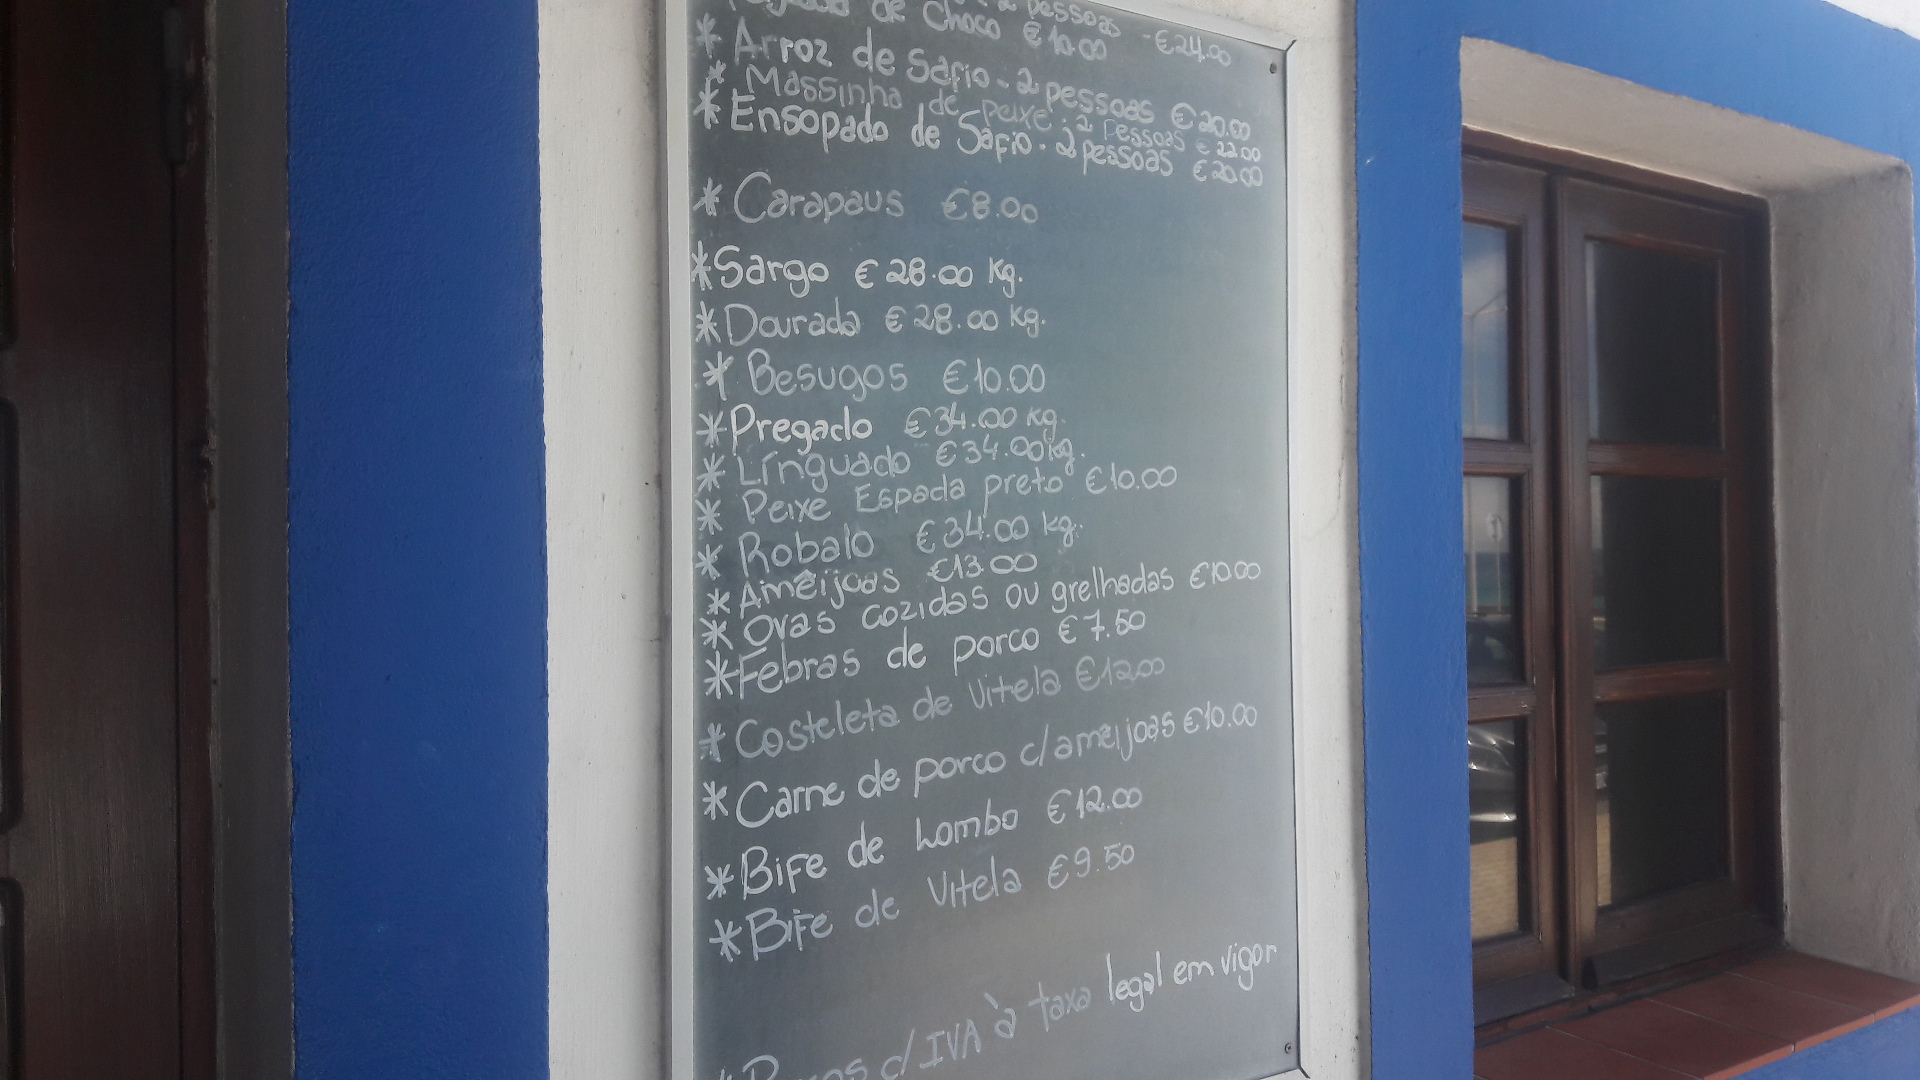 2 pessoas - €24.00
de Choco €10.00
* Arroz de Safio - 2 pessoas €20.00
* Massinha de peixe - 2 Pessoas €22.00
* Ensopado de Safio - 2 pessoas €20.00
* Carapaus €8.00
* Sargo €28.00 Kg.
* Dourada €28.00 Kg.
* Besugos €10.00
* Pregado €34.00 Kg.
* Línguado €34.00 Kg.
* Peixe Espada preto €10.00
* Robalo €34.00 Kg.
* Amêijoas €13.00
* Ovas cozidas ou grelhadas €10.00
* Febras de porco €7.50
* Costeleta de Vitela €12.00
* Carne de porco c/ameijoas €10.00
* Bife de Lombo €12.00
* Bife de Vitela €9.50
c/IVA à taxa legal em vigor